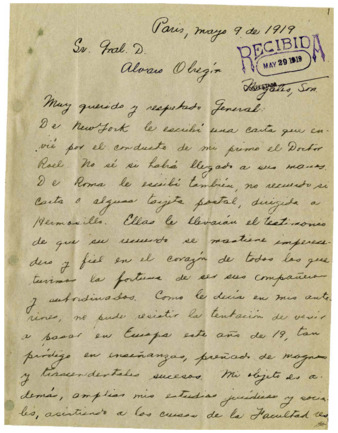 1
Paris, mayo 9 de 1919
Sr. Gral. D.
Alvaro Obregón
RECIBIDA
MAY 29 1919
Nogales, Son.
Muy querido y respetado General:
De New York le escribí una carta que en-
vié por el conducto de mi primo el Doctor
No sé si habrá llegado a sus manos
De Roma le escribí también, no recuerdo si
carta o alguna tarjeta postal, dirigida a
Hermosillo. Ellas le llevarían el testimonio
de que su recuerdo se mantiene imperece-
dero y fiel en el corazón de todos los que
tuvimos la fortuna de ser sus compañeros
y subordinados. Como le decía en mis ante-
riores, no pude resistir la tentación de venir
a pasar en Europa este año de 19, tan
pródigo en enseñanzas, preñado de magnos
y trascendentales sucesos. Mi objeto es a-
demás, ampliar mis estudios jurídicos y socia-
les, asistiendo a los cursos de la Facultad de